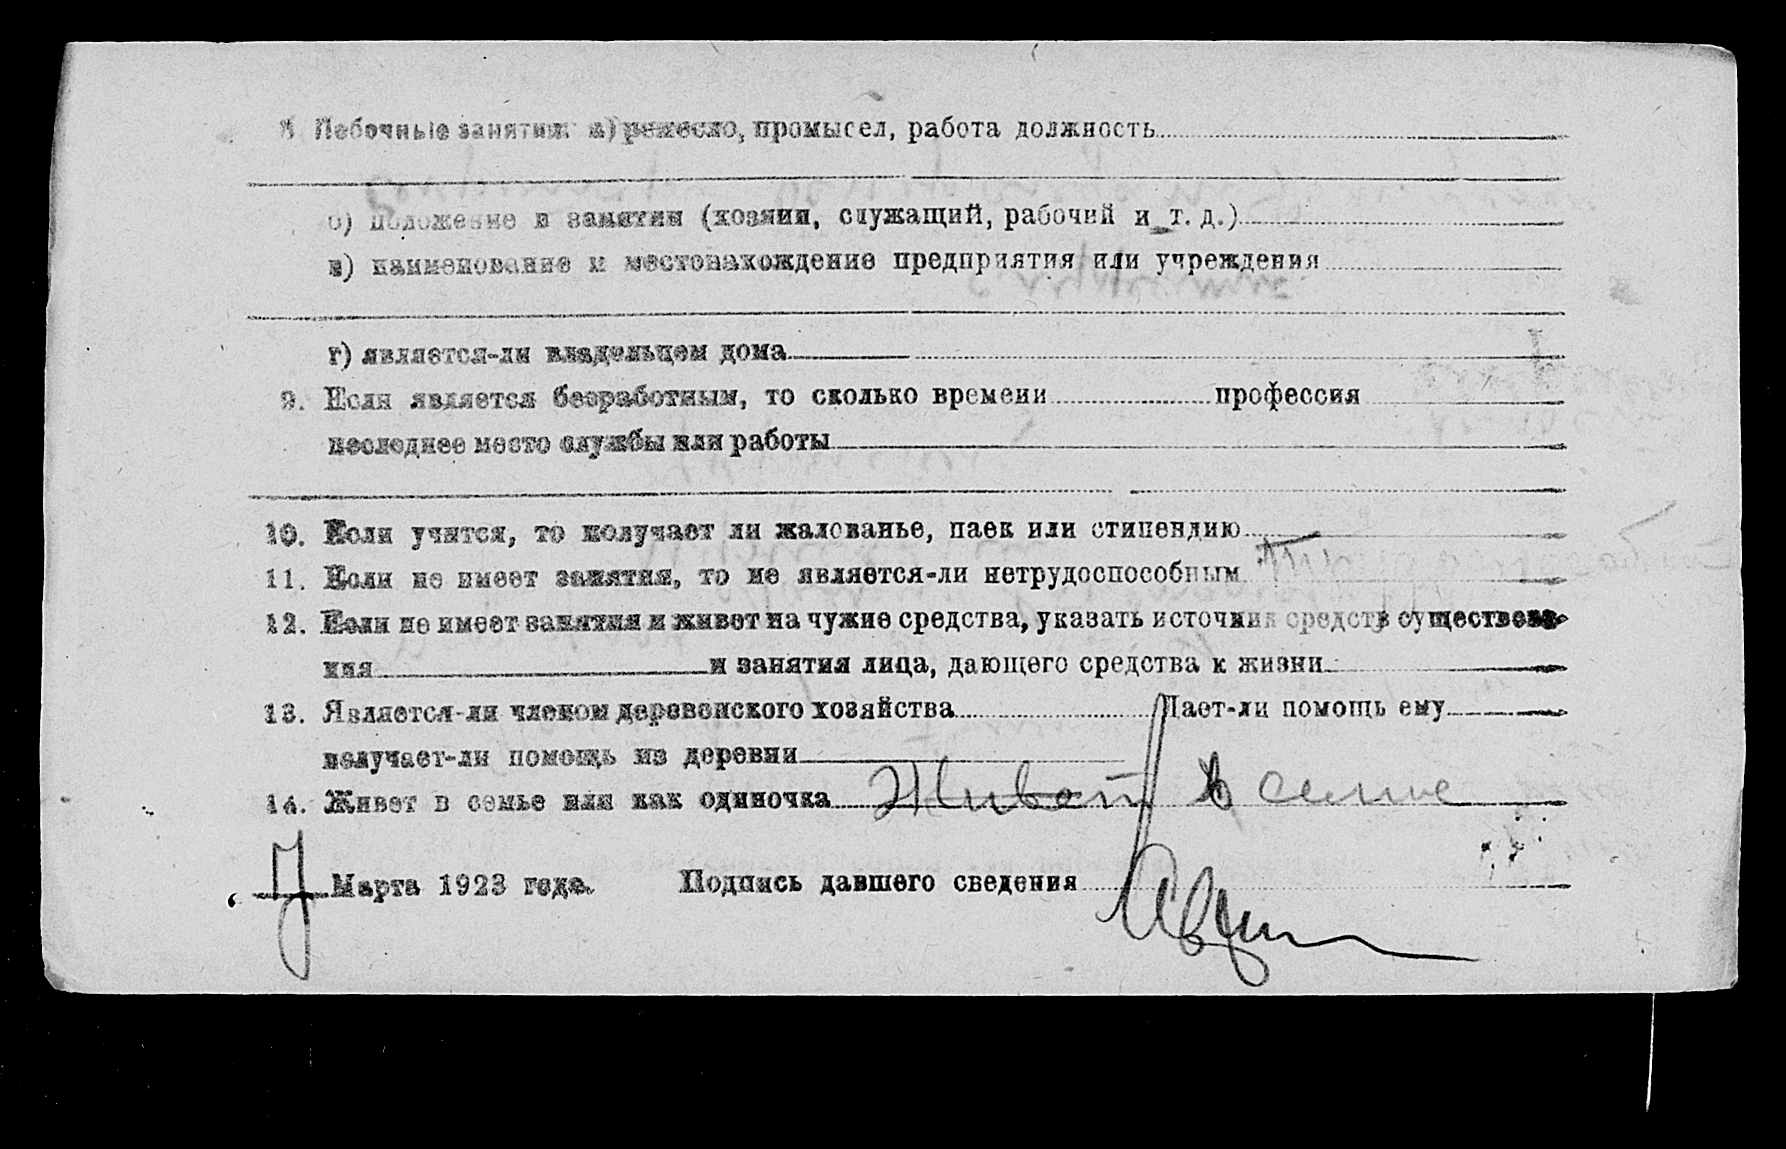 8 Побочные занятия: а) ремесло, промысел, работа должность
б) положение в занятии (хозяин, служащий, рабочий и т. д.)
в) наименование и местонахождение предприятия или учреждения
г) является-ли владельцем дома
9. Если является безработным, то сколько времени профессия
последнее место службы или работы
10. Если учится, то получает ли жалованье, паек или стипендию
11. Если не имеет занятия, то не является-ли нетрудоспособным
12. Если не имеет занятия и живет на чужие средства, указать источник средств существова-
ния и занятия лица, дающего средства к жизни
13. Является-ли членом деревенского хозяйства Дает-ли помощь ему
получает-ли помощь из деревни
14. Живет в семье или как одиночка Живет в семье
Марта 1923 года. Подпись давшего сведения